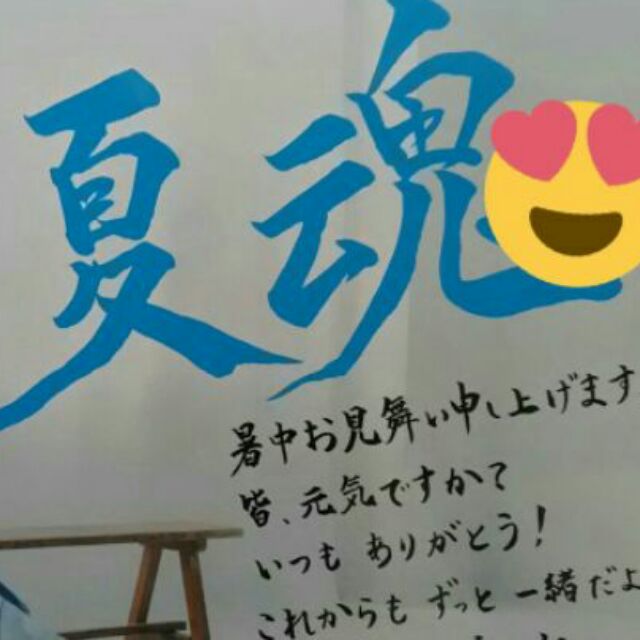 夏魂
暑中お見舞い申し上げます
皆、元気ですかて
いつも ありがとう!
これからも ずっと 一緒だよ